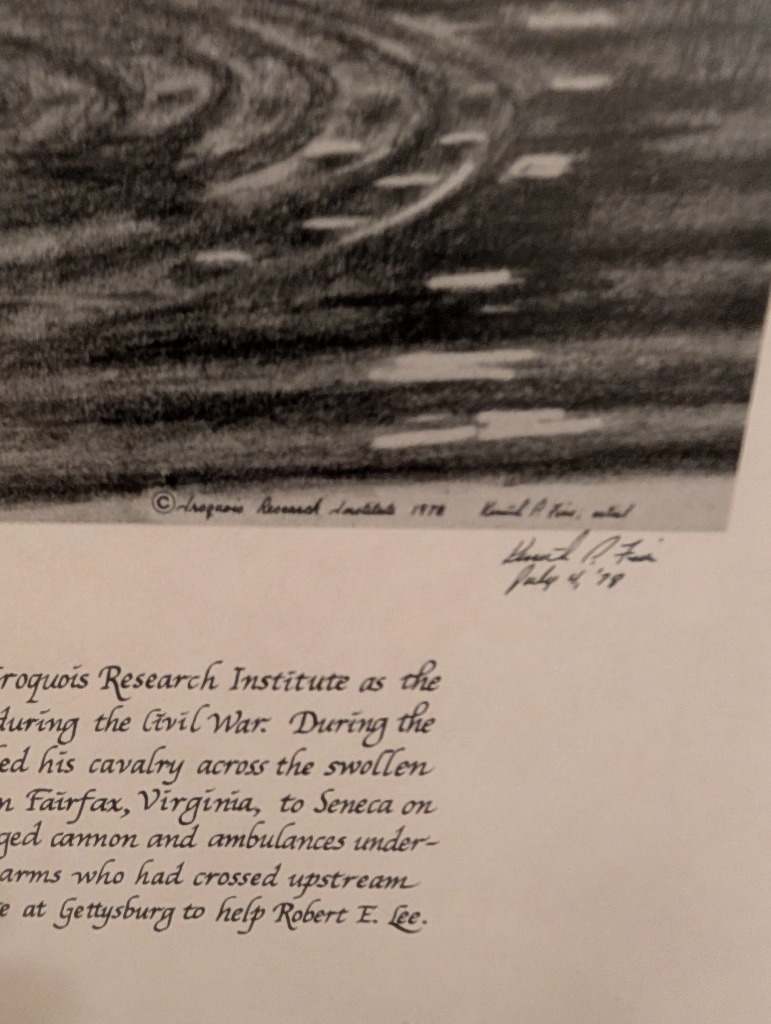 © Iroquois Research Institute 1978
July 4, '78
roquois Research Institute as the
during the Civil War. During the
ed his cavalry across the swollen
n Fairfax, Virginia, to Seneca on
ged cannon and ambulances under-
arms who had crossed upstream
e at Gettysburg to help Robert E. Lee.